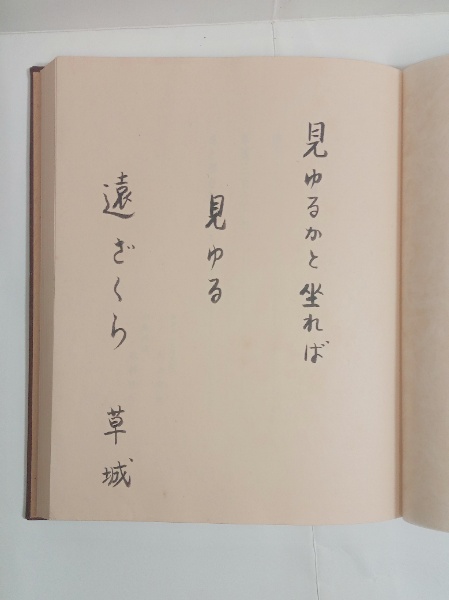 見ゆるかと坐れば
見ゆる
遠ざくら 草城